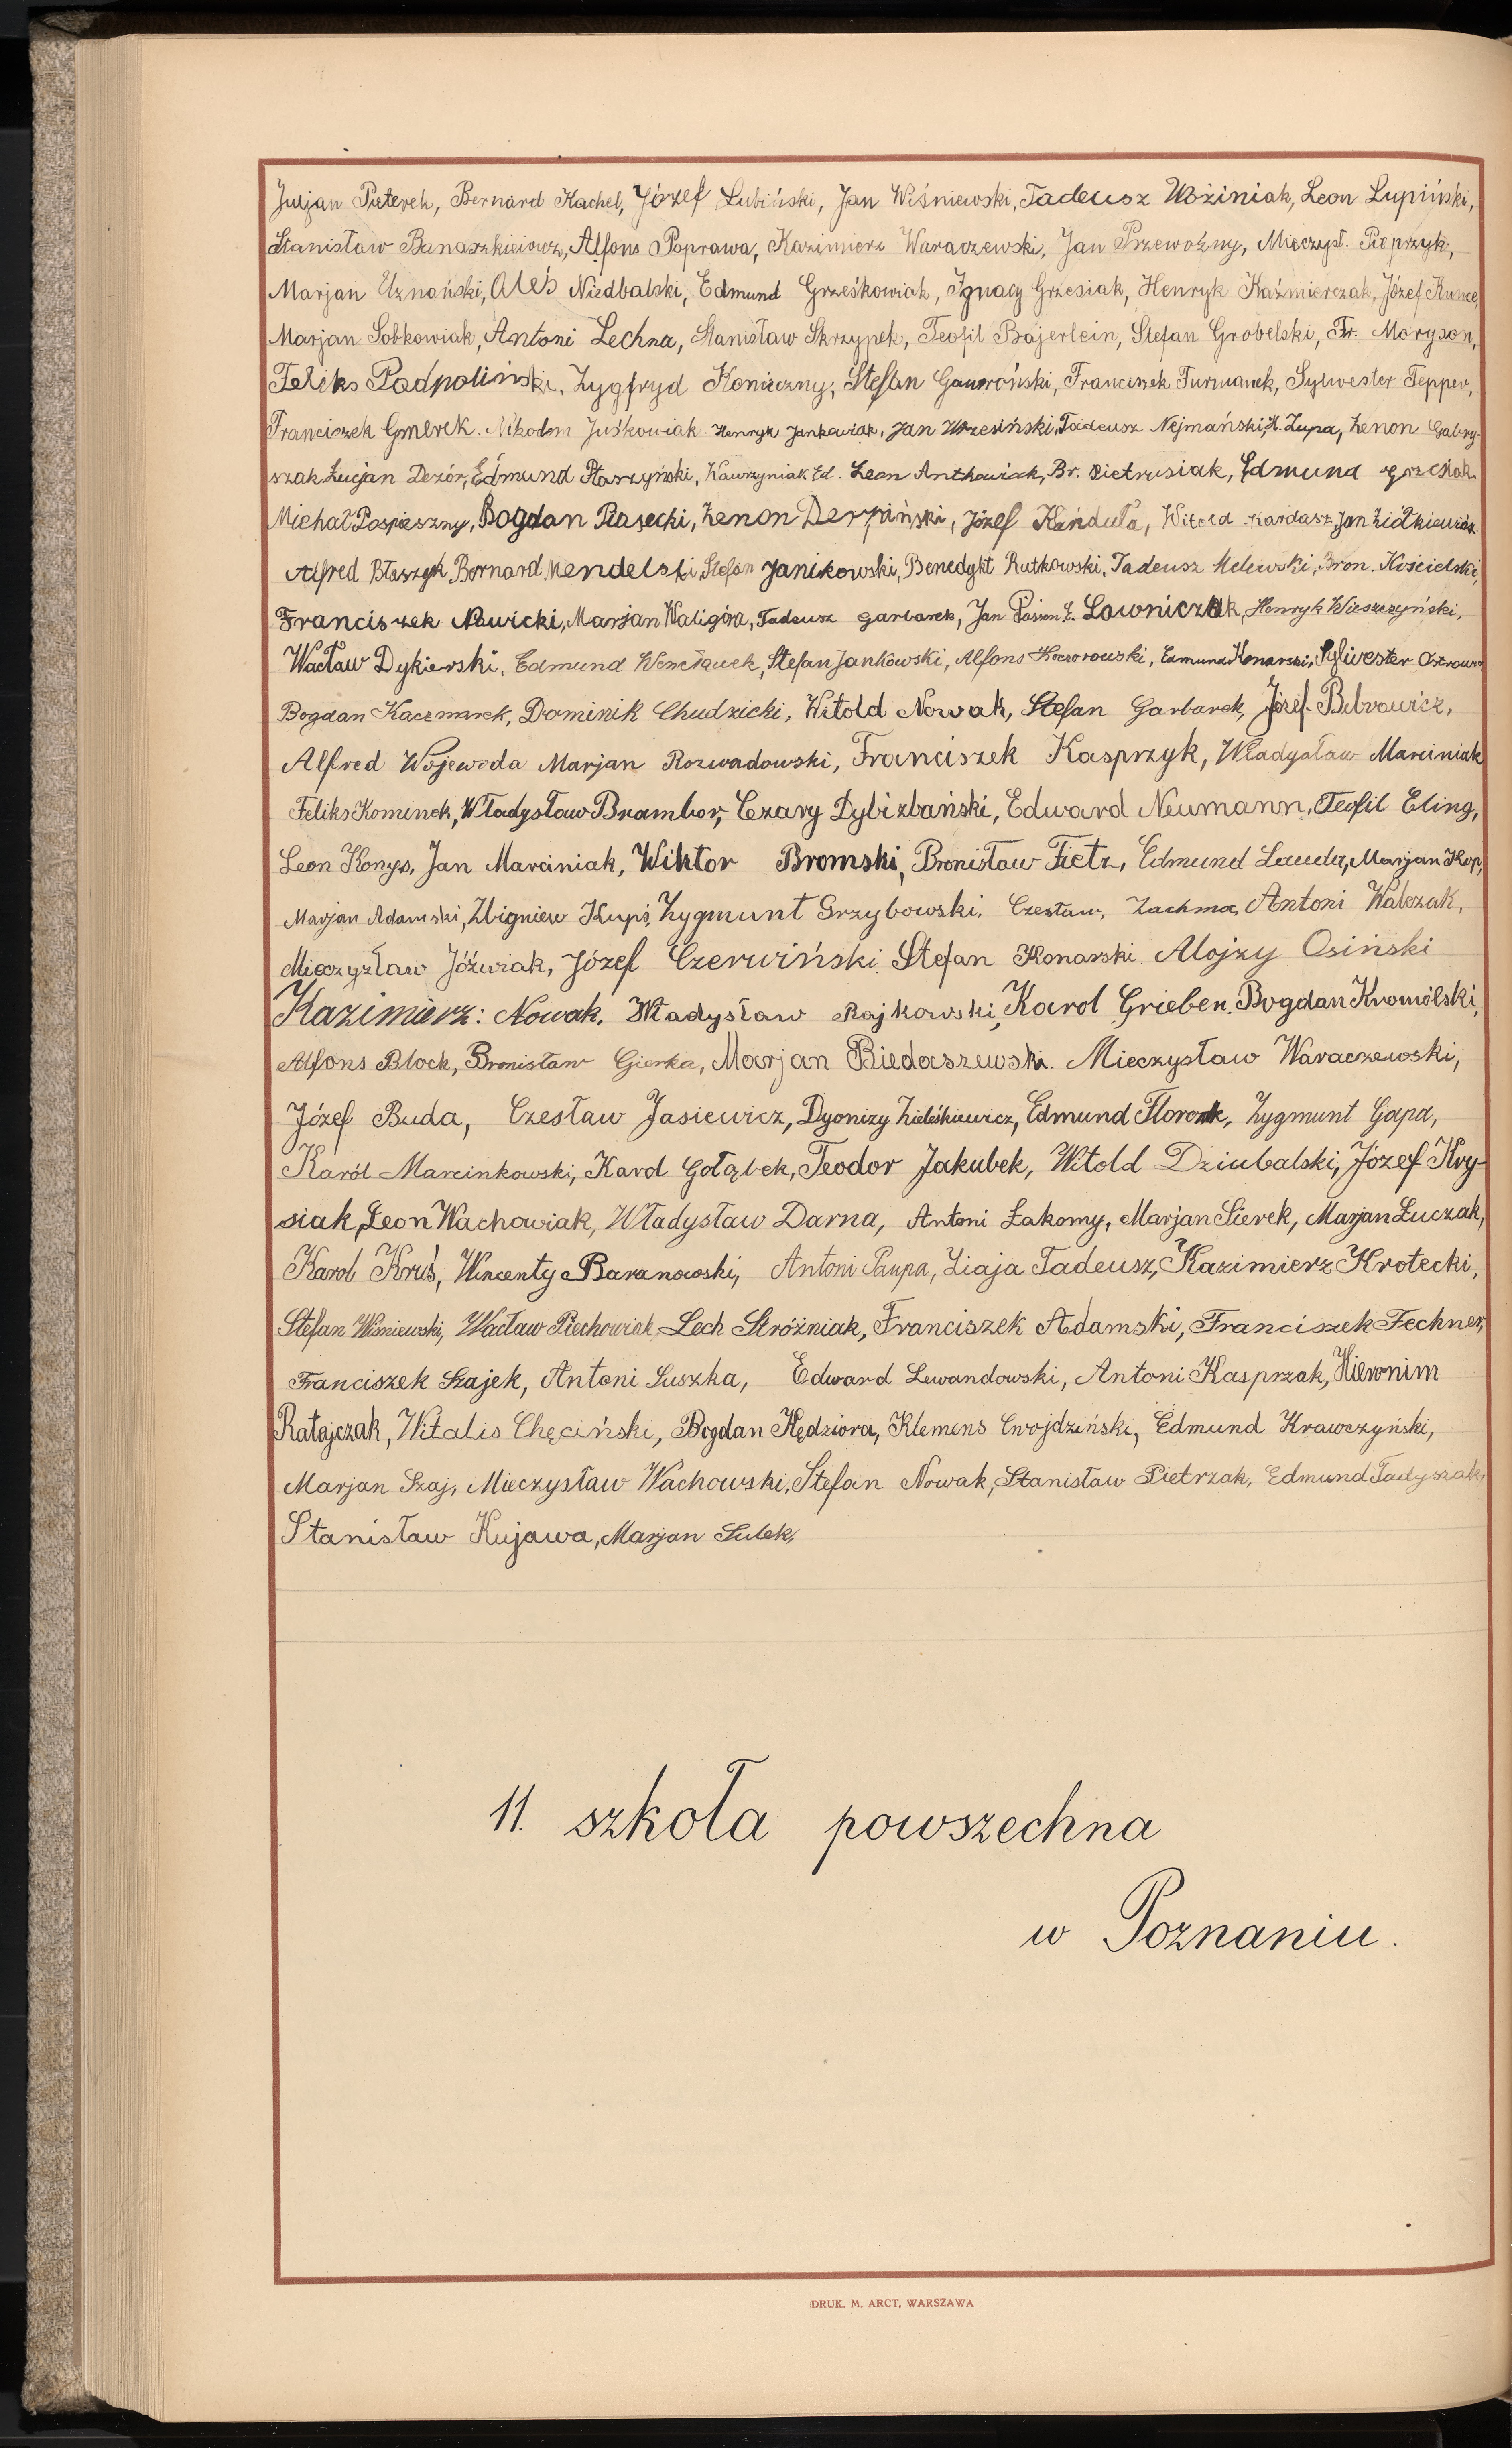 Juljan Pieterek, Bernard Kachel, Józef Lubiński, Jan Wiśniewski, Tadeusz Woźiniak, Leon Lupiński,
Stanisław Banaszkiewicz, Alfons Poprawa, Kazimierz Waraczewski, Jan Przewoźny, Mieczysł. Pieprzyk,
Marjan Uznański, Aleś Niedbalski, Edmund Grześkowiak, Ignacy Grzesiak, Henryk Kaźmierczak, Józef Kunce,
Marjan Sobkowiak, Antoni Lechna, Stanisław Skrzypek, Teofil Bajerlein, Stefan Grobelski, Fr. Moryson,
Feliks Padpoliński, Zygfryd Konieczny, Stefan Gawroński, Franciszek Furmanek, Sylwester Tepper,
Franciszek Gmerek. Nikodm Juśkowiak. Henryk Jankowiak, Jan Wrzesiński, Tadeusz Nejmański, H. Zupa, Zenon Gabry-
szak, Lucjan Dezór, Edmund Ptaszyński, Wawrzyniak Ed. Leon Antkowiak, Br. Pietrusiak, Edmund Grzechak
Michał Pospieszny, Bogdan Piasecki, Zenon Derpiński, Józef Kańduła, Witold Kardasz, Jan Ziółkiewicz.
Alfred Błaszyk Bernard Mendelski, Stefan Janikowski, Benedykt Rutkowski, Tadeusz Melewski, Bron. Kościelski,
Franciszek Nowicki, Marjan Waligóra, Tadeusz Garbarek, Jan Z. Ławniczak, Henryk Wieszczyński,
Wacław Dykierski, Edmund Stefan Jankowski, Alfons Koczorowski, Edmund Konarski, Sylwester
Bogdan Kaczmarek, Dominik Chudzicki, Witold Nowak, Stefan Garbarek, Józef Bibrowicz,
Alfred Wojewoda Marjan Rozwadowski, Franciszek Kasprzyk, Władysław Marciniak
Feliks Kominek, Władysław Brambor, Czary Dybizbański, Edward Neumann, Teofil Eling,
Leon Konys, Jan Marciniak, Wiktor Bromski, Bronisław Tietz, Edmund Marjan Kop,
Marjan Adamski, Zbigniew Kupś, Zygmunt Grzybowski, Czesław, Lachma, Antoni Walczak,
Mieczysław Jóźwiak, Józef Czerwiński Stefan Konarski. Alojzy Osiński
Kazimierz: Nowak, Władysław Rajkowski, Karol Grieben. Bogdan Kromólski,
Alfons Block, Bronisław Gierka, Marjan Biedaszewski. Mieczysław Waraczewski,
Józef Buda, Czesław Jasiewicz, Dyonizy Zieleśkiewicz, Edmund Florczak, Zygmunt Gapa,
Karól Marcinkowski, Karol Gołąbek, Teodor Jakubek, Witold Dziubalski, Józef Kry-
siak, Leon Wachowiak, Władysław Darna, Antoni Łakomy, Marjan Sierek, Marjan Łuczak,
Karol Kruś, Wincenty Baranowski, Antoni Paupa, Ziaja Tadeusz, Kazimierz Krotecki,
Stefan Wiśniewski, Wacław Piechowiak, Lech Stróżniak, Franciszek Adamski, Franciszek Fechner,
Franciszek Szajek, Antoni Suszka, Edward Lewandowski, Antoni Kasprzak, Hieronim
Ratajczak, Witalis Chęciński, Bogdan Kędziora, Klemens Cwojdziński, Edmund Krawczyński,
Marjan Szaj, Mieczysław Wachowski, Stefan Nowak, Stanisław Pietrzak, Edmund Tadyszak,
Stanisław Kujawa, Marjan Sulek,
11. szkoła powszechna
w Poznaniu.
DRUK. M. ARCT, WARSZAWA